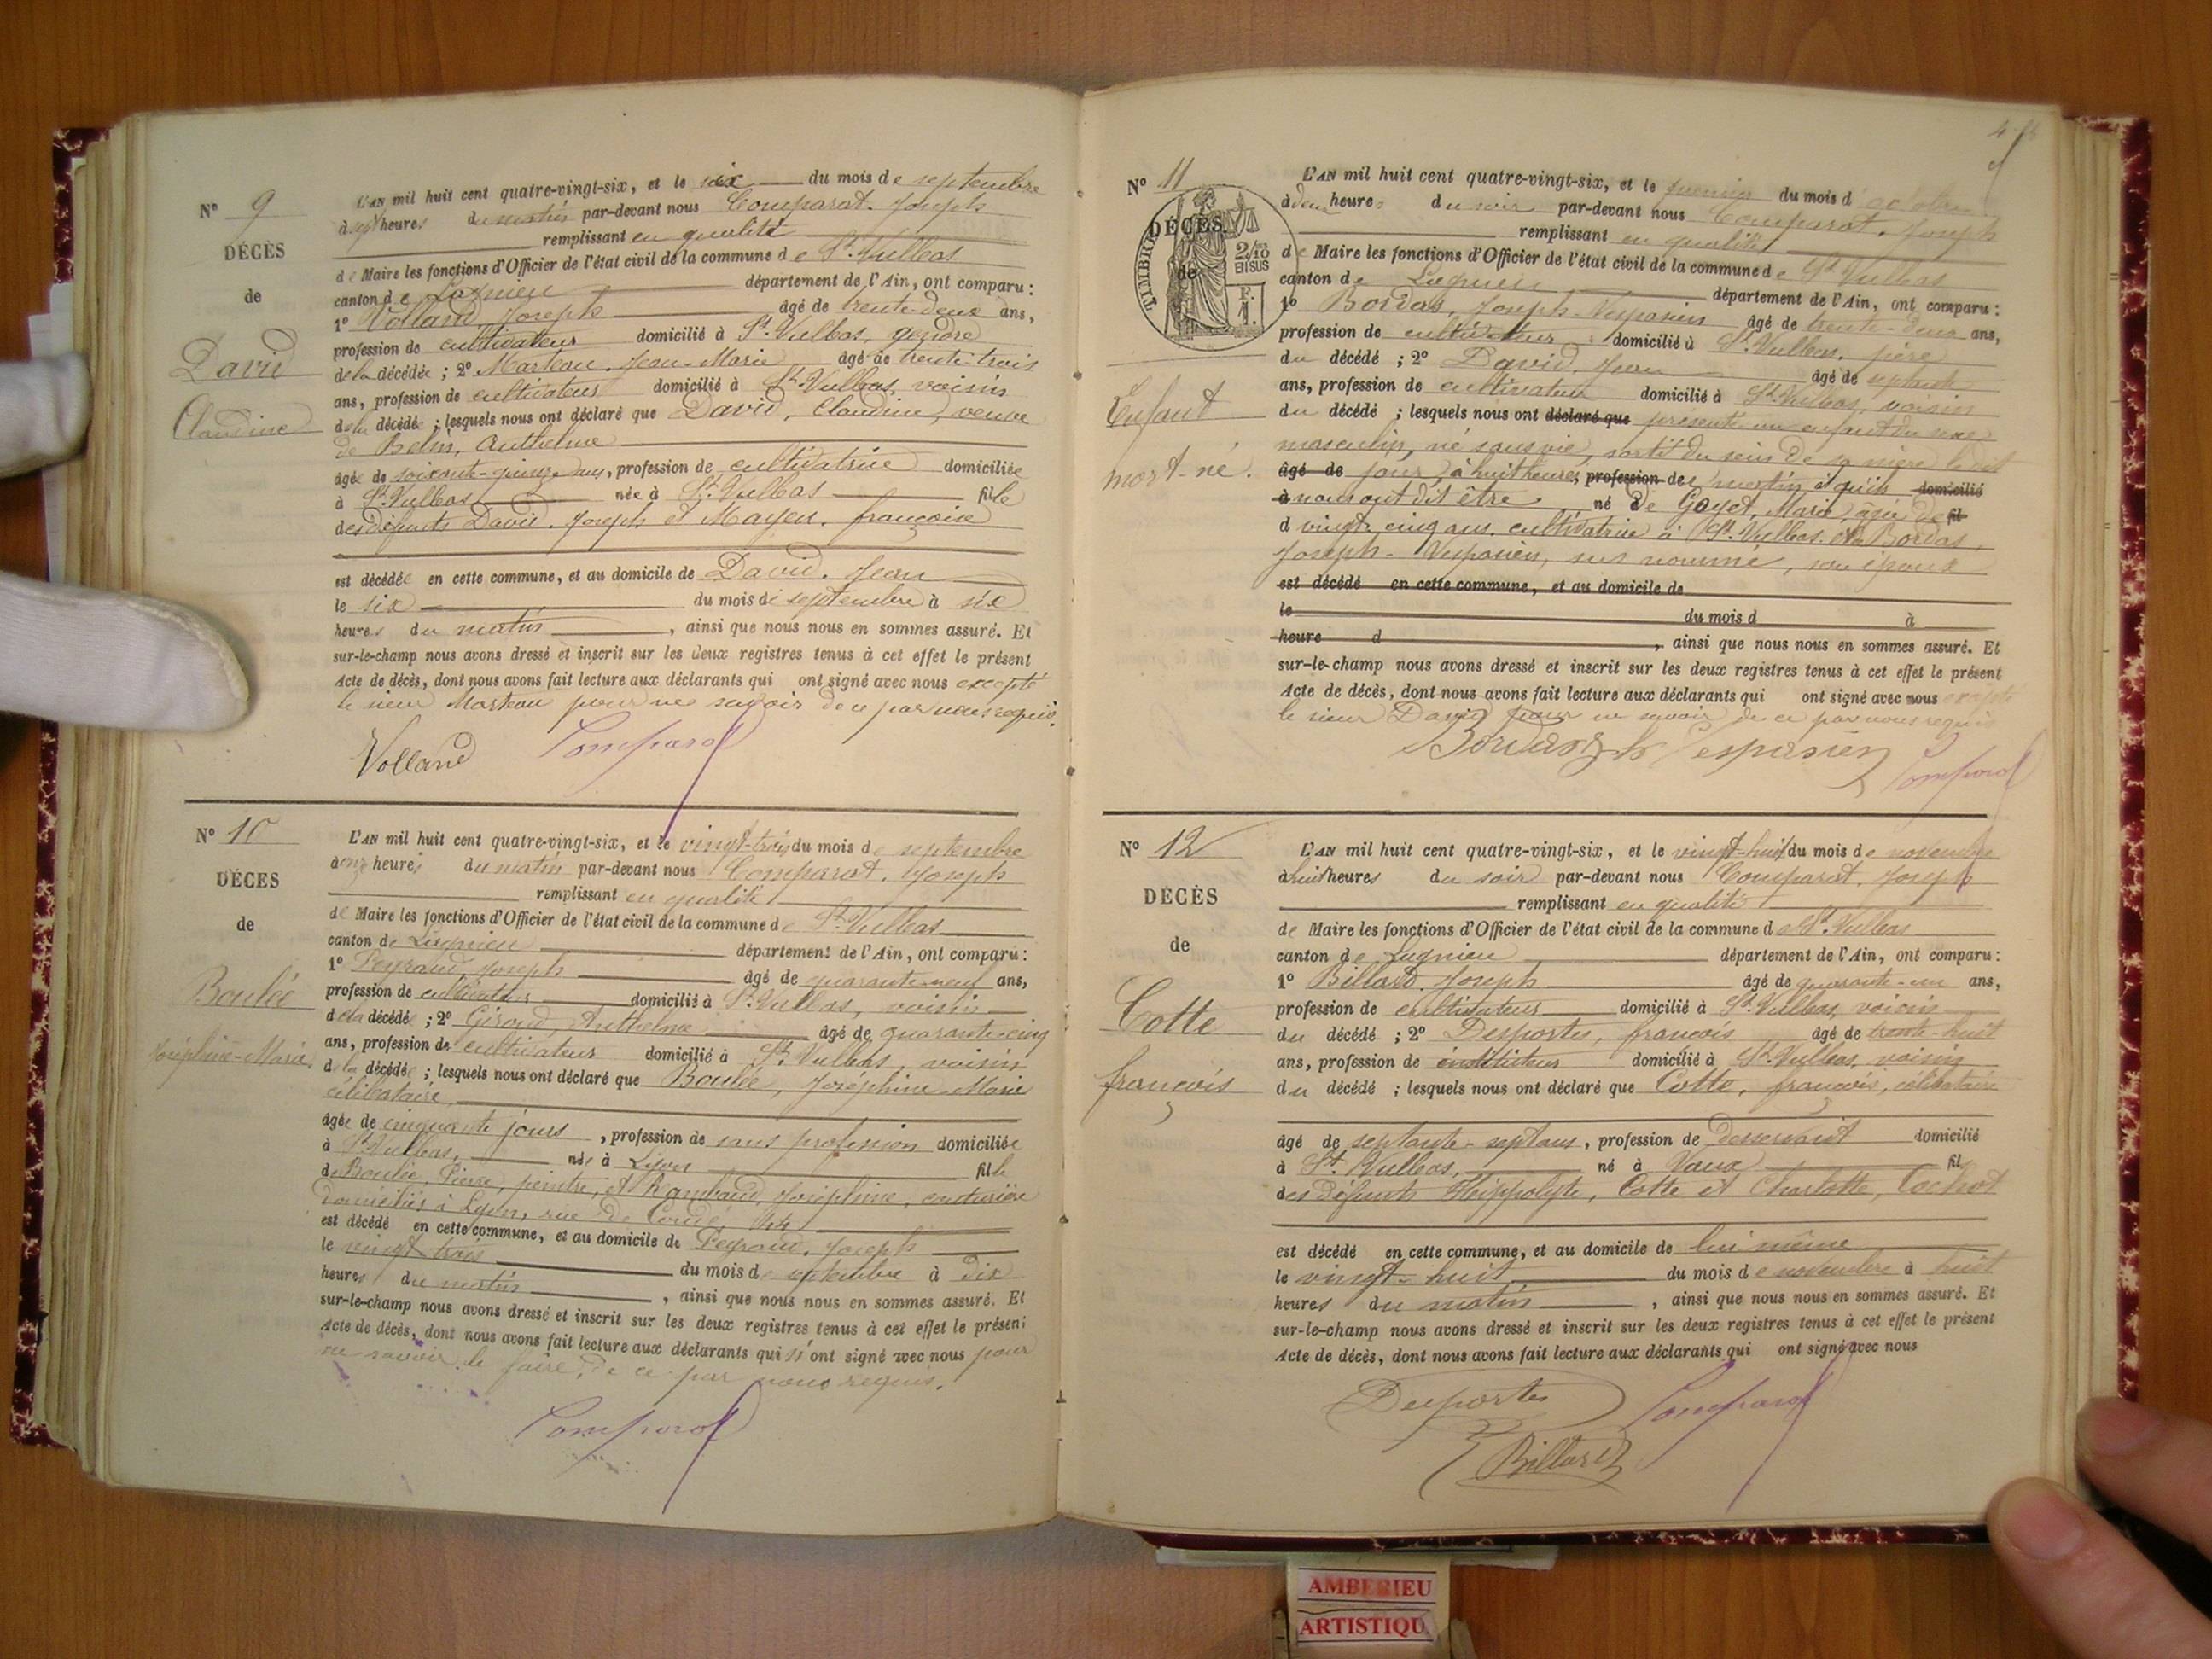 N° 9
DÉCÈS
de
David
Claudine
L'AN mil huit cent quatre-vingt-six, et le six du mois de septembre
à sept heures du matin par-devant nous Comparat, Joseph
remplissant en qualité
de Maire les fonctions d'Officier de l'état civil de la commune de St. Vulbas
canton de Lagnieu département de l'Ain, ont comparu :
1° Volland Joseph âgé de trente-deux ans,
profession de cultivateur domicilié à St. Vulbas, gendre
de la décédée ; 2° Marteau, Jean-Marie âgé de trente-trois
ans, profession de cultivateur domicilié à St. Vulbas, voisin
de la décédée ; lesquels nous ont déclaré que David, Claudine, veuve
de Belin, Anthelme
âgée de soixante-quinze ans, profession de cultivatrice domiciliée
à St. Vulbas née à St. Vulbas fille
des défunts David, Joseph et Mayeu, françoise
est décédée en cette commune, et au domicile de David, Jean
le six du mois de septembre à six
heures du matin, ainsi que nous nous en sommes assuré. Et
sur-le-champ nous avons dressé et inscrit sur les deux registres tenus à cet effet le présent
Acte de décès, dont nous avons fait lecture aux déclarants qui ont signé avec nous excepté
le sieur Marteau pour ne savoir de ce par nous requis.
Volland Comparat
N° 10
DÉCÈS
de
Boulée
Joséphine-Marie
L'AN mil huit cent quatre-vingt-six, et le vingt-trois du mois de septembre
à onze heures du matin par-devant nous Comparat, Joseph
remplissant en qualité
de Maire les fonctions d'Officier de l'état civil de la commune de St. Vulbas
canton de Lagnieu département de l'Ain, ont comparu :
1° Peyraud, Joseph âgé de quarante-neuf ans,
profession de cultivateur domicilié à St. Vulbas, voisin
de la décédée ; 2° Giroud, Anthelme âgé de quarante-cinq
ans, profession de cultivateur domicilié à St. Vulbas, voisin
de la décédée ; lesquels nous ont déclaré que Boulée, Joséphine-Marie
célibataire,
âgée de cinquante jours, profession de sans profession domiciliée
à St. Vulbas, née à Lyon fille
de Boulée, Pierre, peintre, et Rambaud, Joséphine, couturière
domiciliés à Lyon, rue de Condé,
est décédé en cette commune, et au domicile de Peyraud, Joseph
le vingt trois du mois de septembre à dix
heures du matin, ainsi que nous nous en sommes assuré. Et
sur-le-champ nous avons dressé et inscrit sur les deux registres tenus à cet effet le présent
Acte de décès, dont nous avons fait lecture aux déclarants qui n'ont signé avec nous pour
ne savoir le faire, de ce par nous requis.
Comparat
N° 11
DÉCÈS
de
TIMBRE
2/10
EN SUS
F.
1.
Enfant
mort-né.
L'AN mil huit cent quatre-vingt-six, et le premier du mois d'octobre
à deux heures du soir par-devant nous Comparat, Joseph
remplissant en qualité
de Maire les fonctions d'Officier de l'état civil de la commune de St. Vulbas
canton de Lagnieu département de l'Ain, ont comparu :
1° Bordas, Joseph-Vespasien âgé de trente-deux ans,
profession de cultivateur domicilié à St. Vulbas, père
du décédé ; 2° David, Jean âgé de septante
ans, profession de cultivateur domicilié à St. Vulbas, voisin
du décédé ; lesquels nous ont déclaré que présenté un enfant du sexe
masculin, né sans vie, sortit du sein de sa mère le
âgé de jour, à huit heures, profession de matin et qu'ils domicilié
à nous ont dit être né de Goyet, Marie, âgée de fil
d vingt-cinq ans, cultivatrice à St. Vulbas, et de Bordas,
Joseph-Vespasien, sus nommé, son époux
est décédé en cette commune, et au domicile de
le du mois d à
heure d , ainsi que nous nous en sommes assuré. Et
sur-le-champ nous avons dressé et inscrit sur les deux registres tenus à cet effet le présent
Acte de décès, dont nous avons fait lecture aux déclarants qui ont signé avec nous excepté
le sieur David pour ne savoir de ce par nous requis
Bordas Vespasien Comparat
N° 12
DÉCÈS
de
Cotte
françois
L'AN mil huit cent quatre-vingt-six, et le vingt-huit du mois de novembre
à huit heures du soir par-devant nous Comparat, Joseph
remplissant en qualité
de Maire les fonctions d'Officier de l'état civil de la commune de St. Vulbas
canton de Lagnieu département de l'Ain, ont comparu :
1° Billard, Joseph âgé de quarante-un ans,
profession de cultivateur domicilié à St. Vulbas, voisin
du décédé ; 2° Desportes, françois âgé de trente-huit
ans, profession de instituteur domicilié à St. Vulbas, voisin
du décédé ; lesquels nous ont déclaré que Cotte, françois, célibataire
âgé de septante-sept ans, profession de desservant domicilié
à St. Vulbas, né à Vaux fil
des défunts Hippolyte, Cotte et Charlotte, Cochot
est décédé en cette commune, et au domicile de lui même
le vingt-huit du mois de novembre à huit
heures du matin, ainsi que nous nous en sommes assuré. Et
sur-le-champ nous avons dressé et inscrit sur les deux registres tenus à cet effet le présent
Acte de décès, dont nous avons fait lecture aux déclarants qui ont signé avec nous
Desportes Comparat
Billard
AMBERIEU
ARTISTIQU